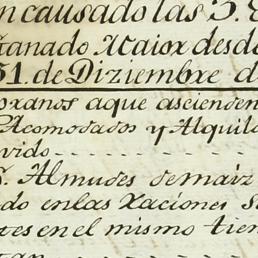 n causado las 3.
Ganado Maior desd
31. de Diziembre d
oranos aque ascienden
Acomodados y Alquil
rvido
S. Almudes demaiz
do enlas Raciones s
res en el mismo tien